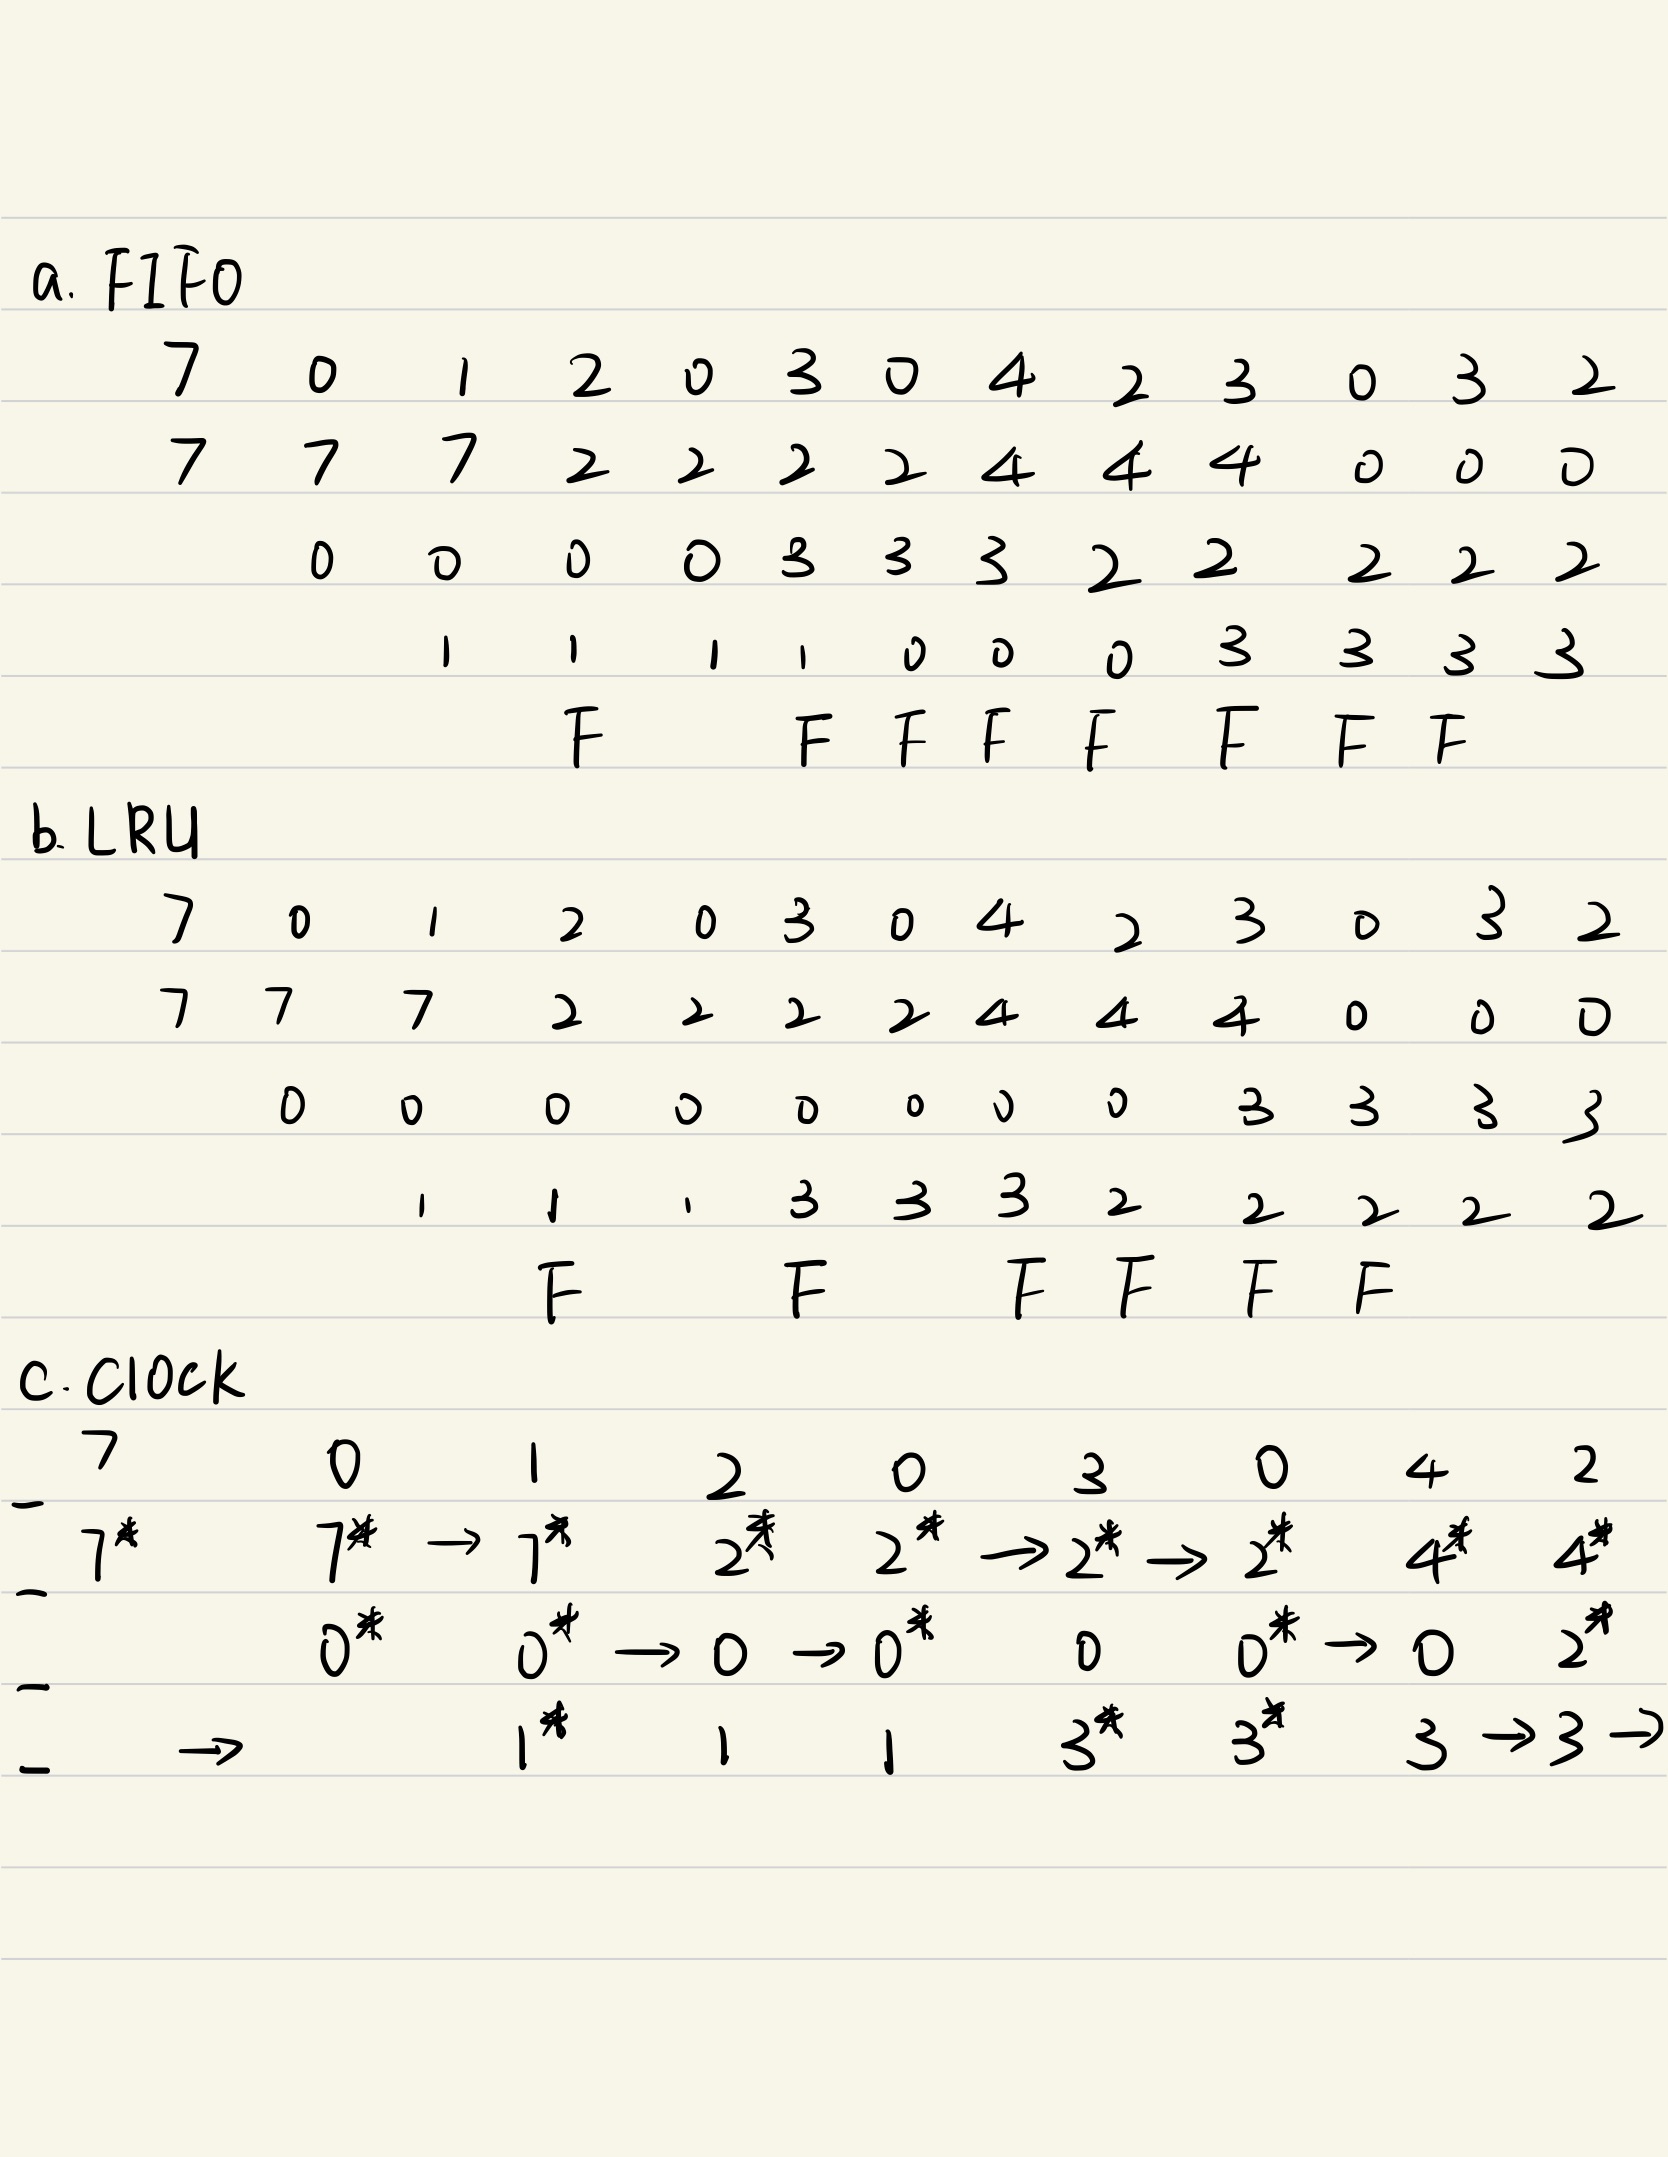 a. FIFO
7 0 1 2 0 3 0 4 2 3 0 3 2
7 7 7 2 2 2 2 4 4 4 0 0 0
0 0 0 0 3 3 3 2 2 2 2 2
1 1 1 1 0 0 0 3 3 3 3
F F F F F F F F
b. LRU
7 0 1 2 0 3 0 4 2 3 0 3 2
7 7 7 2 2 2 2 4 4 4 0 0 0
0 0 0 0 0 0 0 0 3 3 3 3
1 1 1 3 3 3 2 2 2 2 2
F F F F F F
c. Clock
7 0 1 2 0 3 0 4 2
7* 7* → 7* 2* 2* → 2* → 2* 4* 4*
0* 0* → 0 → 0* 0 0* → 0 2*
→ 1* 1 1 3* 3* 3 → 3 →